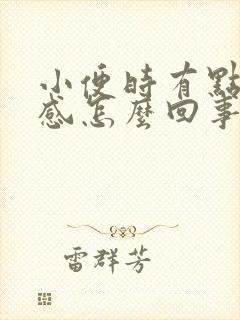 小便時有點
感怎麼回事
雷群芳